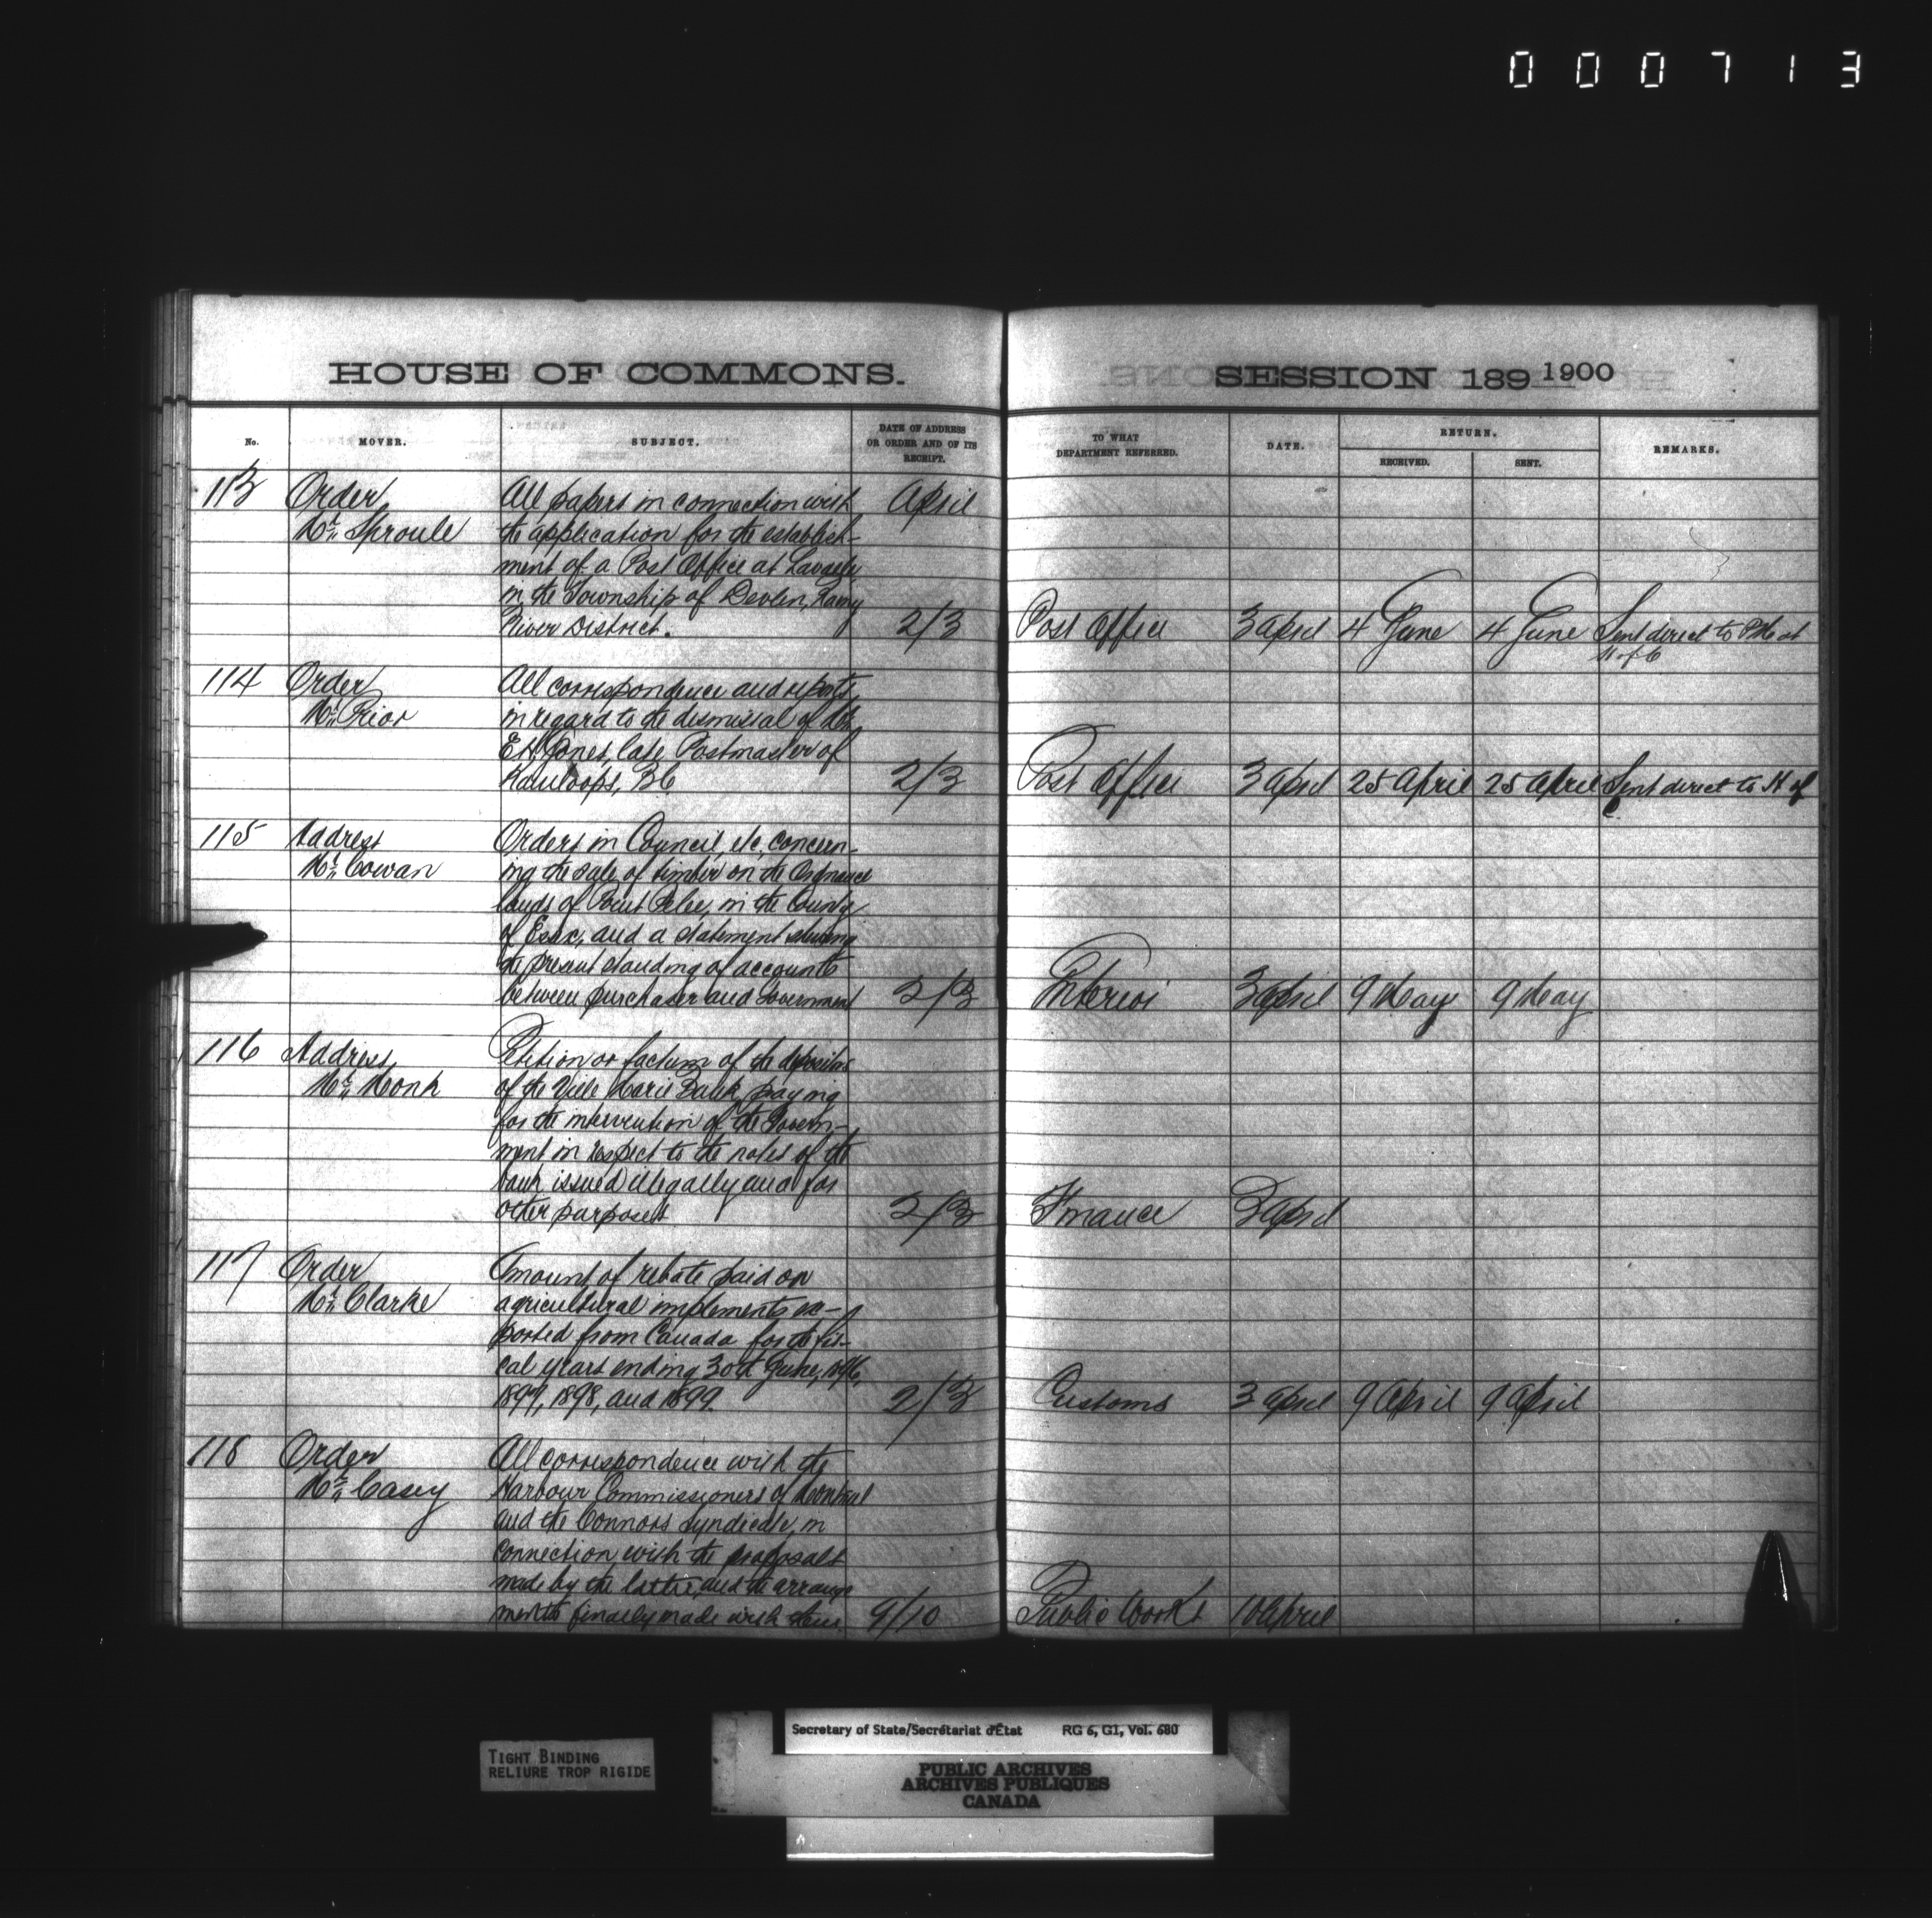 000713
HOUSE OF COMMONS.
SESSION 189 1900
No.
MOVER.
SUBJECT.
DATE OF ADDRESS
OR ORDER AND OF ITS
RECEIPT.
TO WHAT
DEPARTMENT REFERRED.
DATE.
RETURN.
RECEIVED.
SENT.
REMARKS.
113 Order
Mr. Sproule
All papers in connection with
the application for the establish-
ment of a Post Office at
in the Township of Devlin, Rainy
River District.
April
2/3
Post Office
3 April
4 June
4 June
Sent direct to at
H of C
114 Order
Mr. Prior
All correspondence and reports
in regard to the dismissal of Mr.
E H Jones, late Postmaster of
Kamloops, BC
2/3
Post Office
3 April
25 April
25 April
Sent direct to H of
C
115 Address
Mr. Cowan
Orders in Council, etc, concern-
ing the sale of timber on the Ordnance
lands of Point Pelee, in the County
of Essex, and a statement showing
the present standing of accounts
between purchaser and Government
2/3
Interior
3 April
9 May
9 May
116 Address
Mr. Monk
Petition or factum of the depositors
of the Ville Marie Bank praying
for the intervention of the Govern-
ment in respect to the notes of the
bank issued illegally and for
other purposes
2/3
Finance
3 April
117 Order
Mr. Clarke
Amount of rebate paid on
agricultural implements ex-
ported from Canada for the fis-
cal years ending 30th June, 1896,
1897, 1898, and 1899.
2/3
Customs
3 April
9 April
9 April
118 Order
Mr. Casey
All correspondence with the
Harbour Commissioners of Montreal
and the Connors Syndicate, in
connection with the proposals
made by the latter, and the arrange
ments finally made with them
9/10
Public Works
10 April
TIGHT BINDING
RELIURE TROP RIGIDE
Secretary of State/Secrétariat d'État RG 6, G1, Vol. 680
PUBLIC ARCHIVES
ARCHIVES PUBLIQUES
CANADA